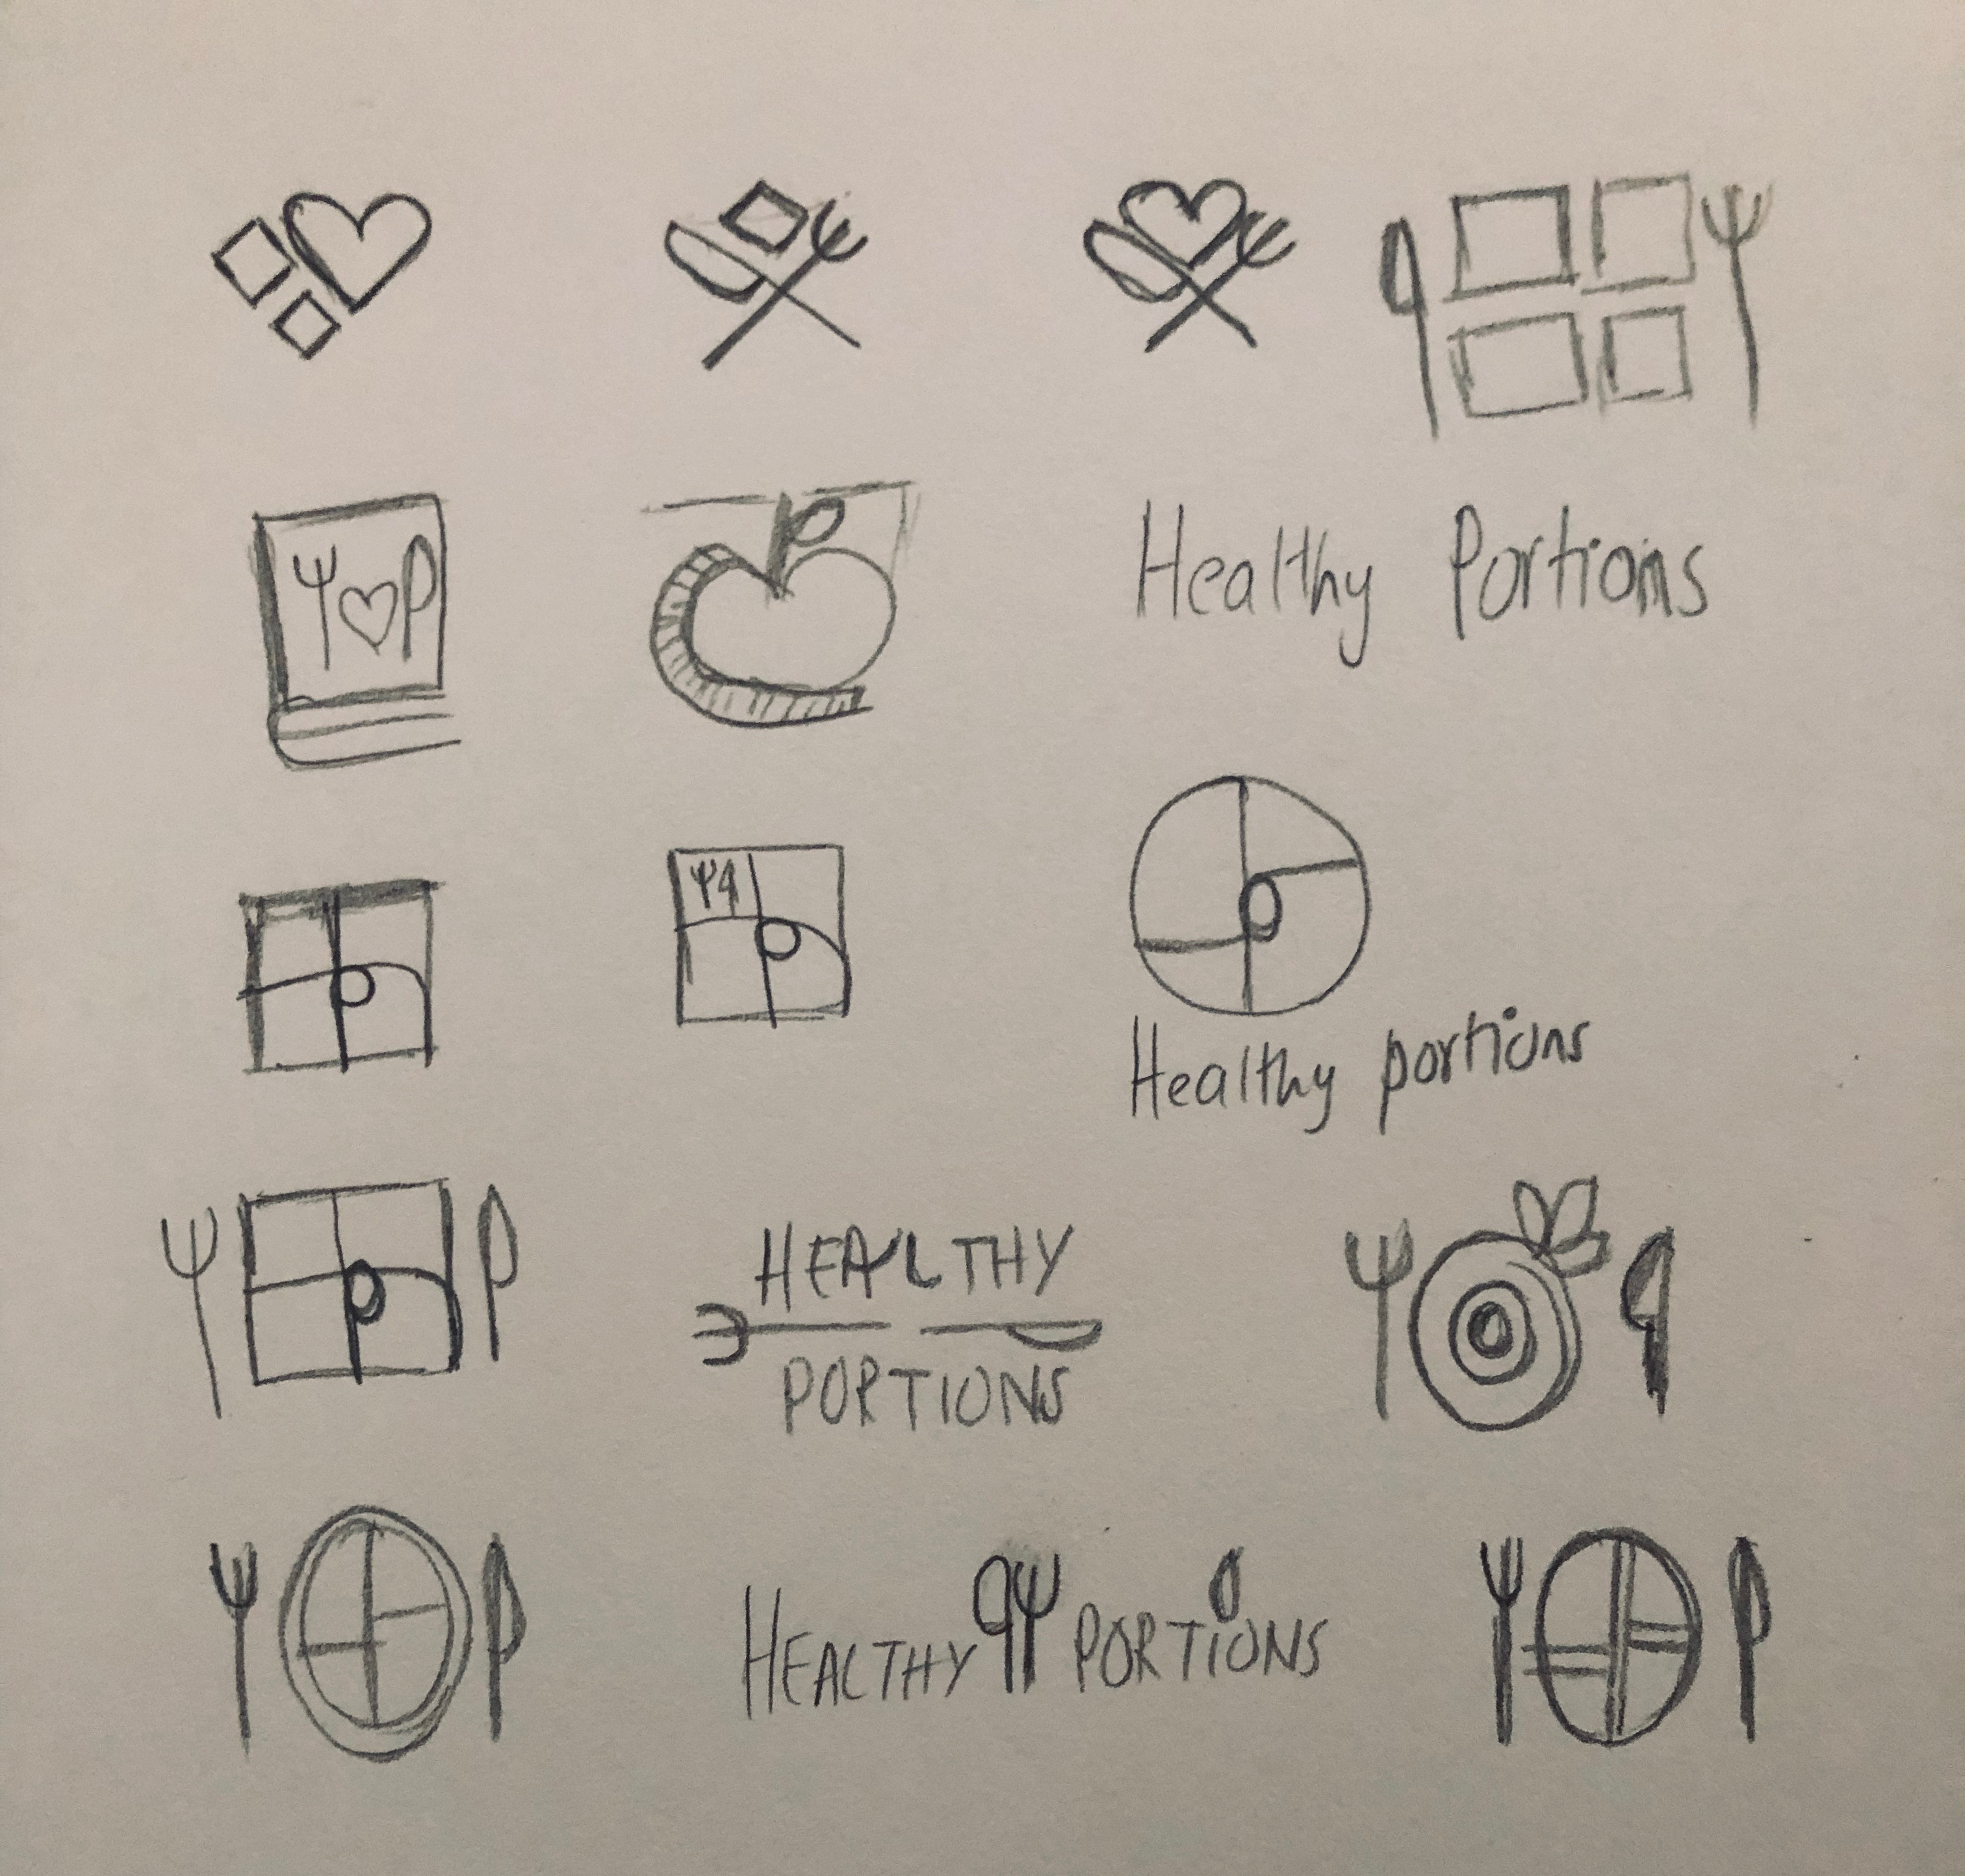 Healthy Portions
Healthy portions
HEALTHY
PORTIONS
HEALTHY PORTIONS